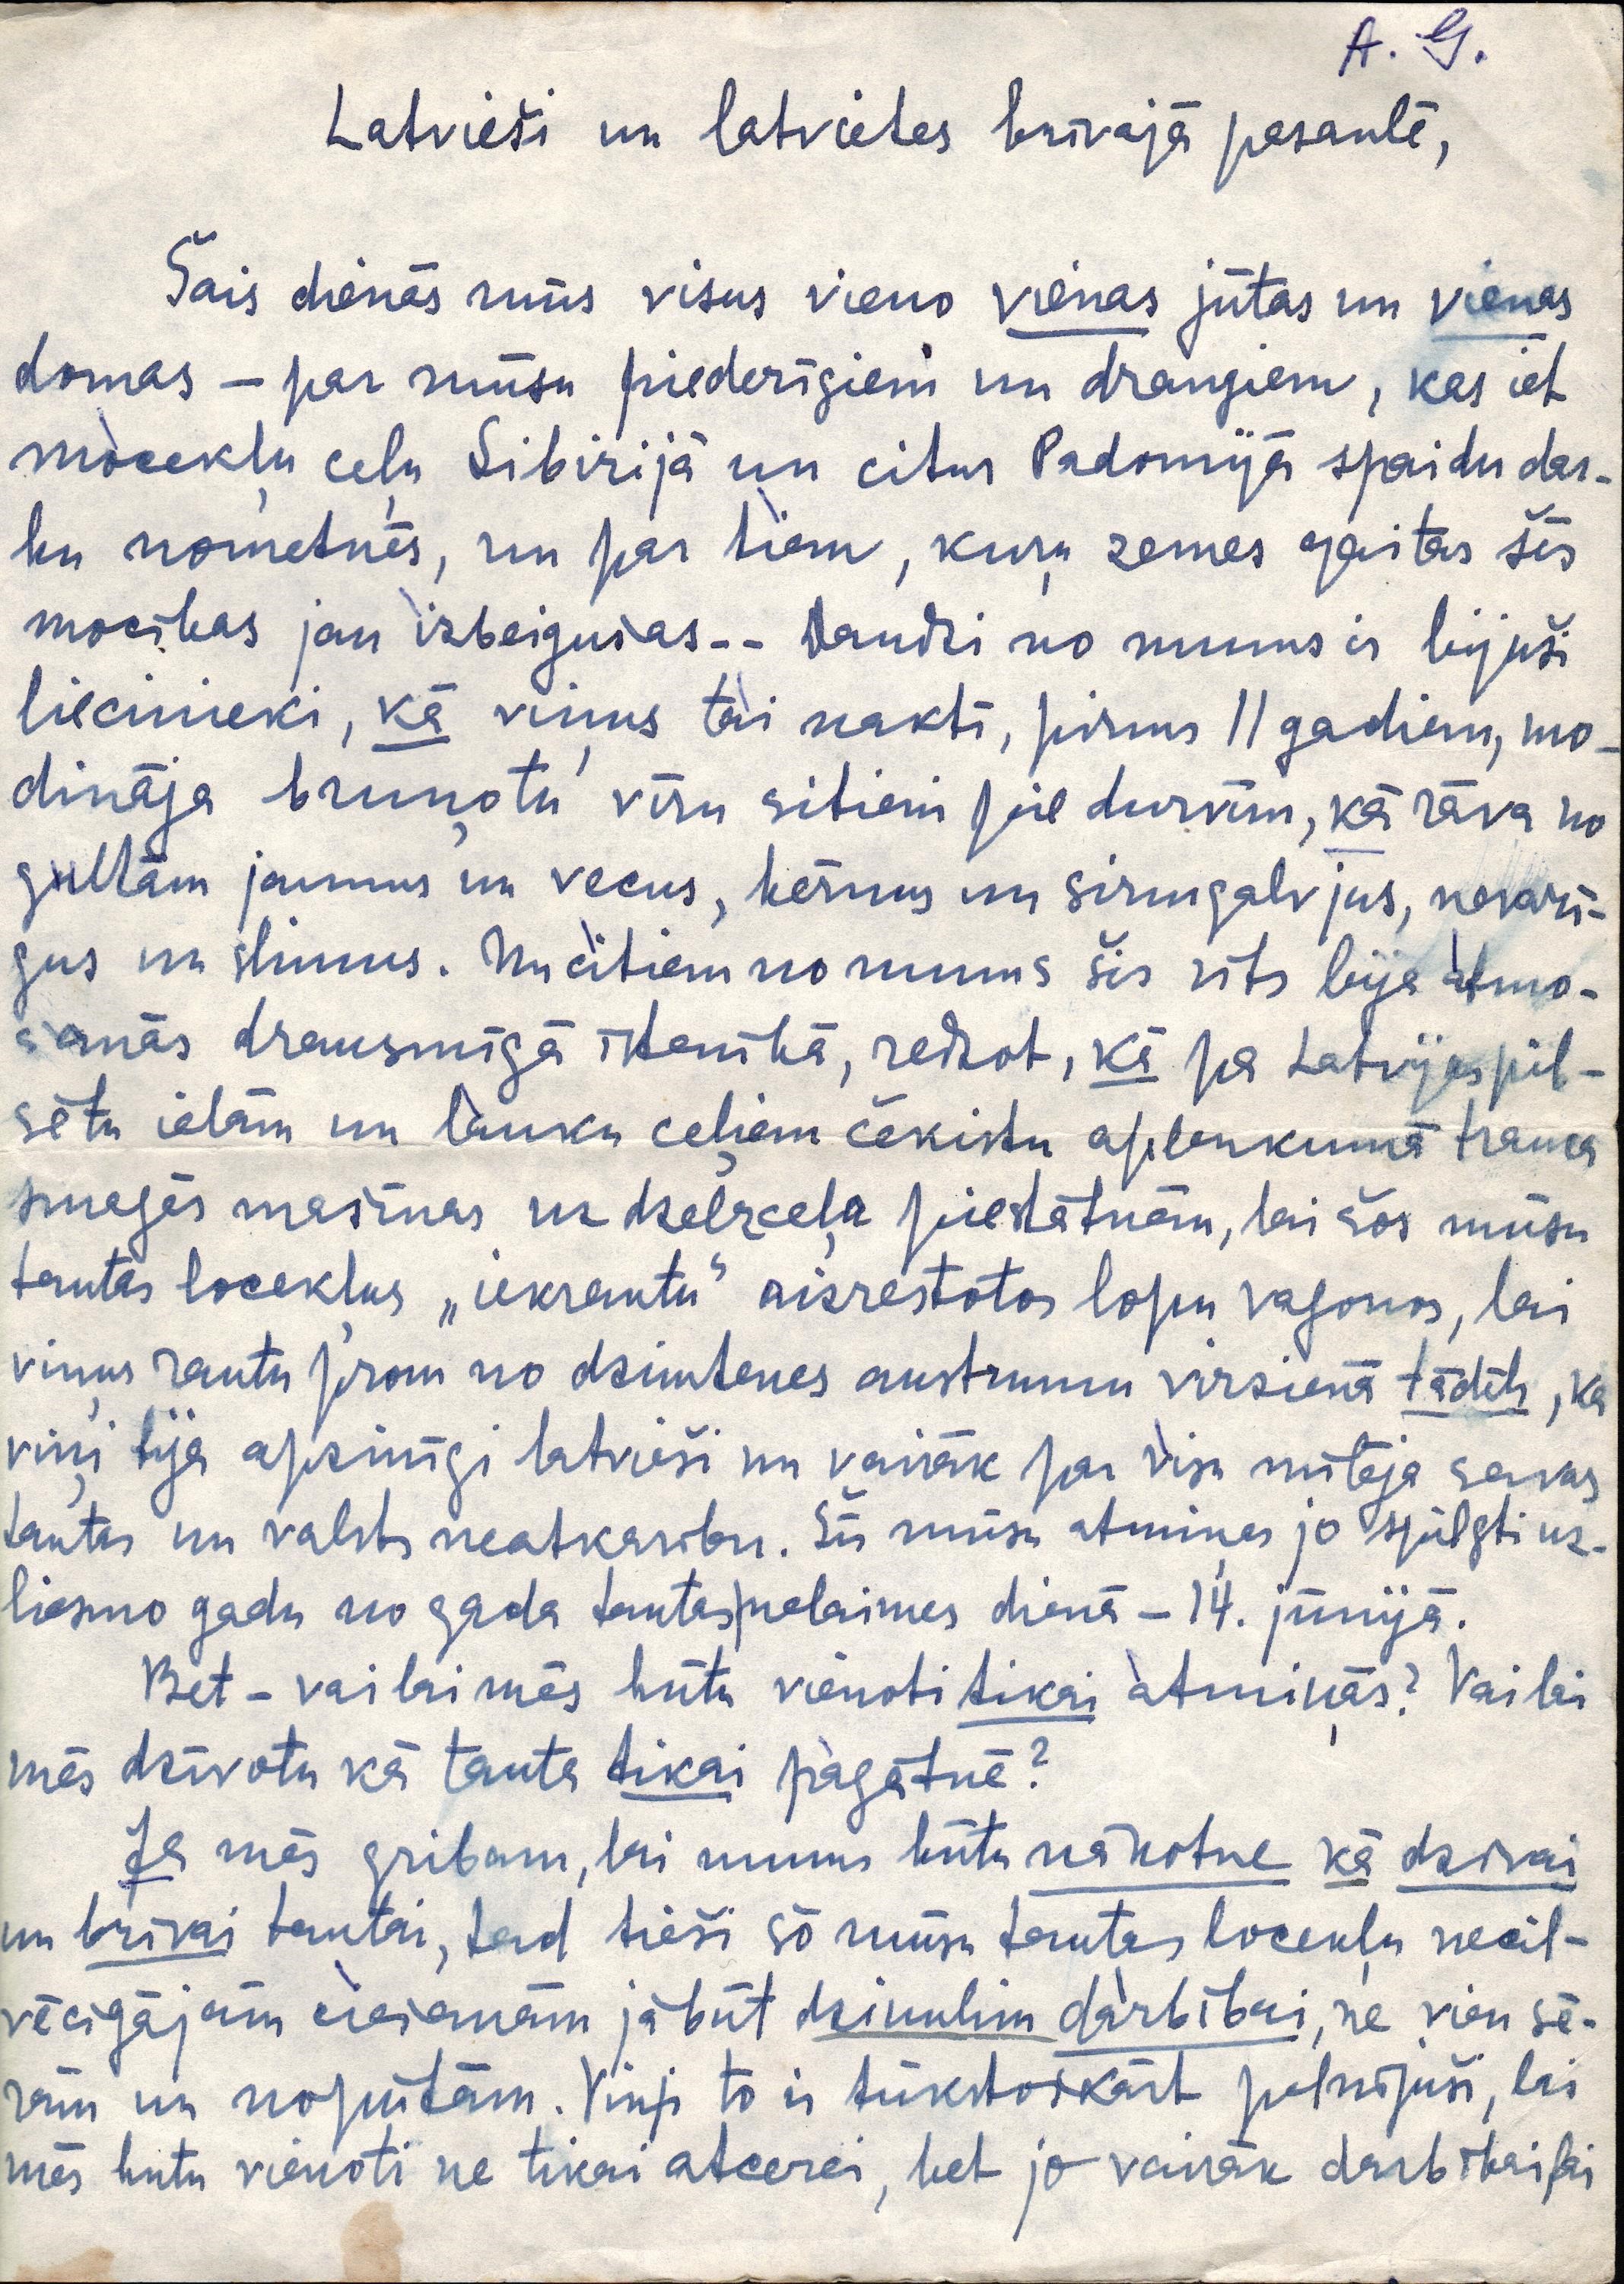 A. G.
Latvieši un latvietes brīvajā pasaulē,
Šais dienās mūs visus vieno vienas jūtas un vienas
domas – par mūsu piederīgiem un draugiem, kas iet
mocekļu ceļu Sibirijā un citur Padomijā spaidu dar-
bu nometnēs, un par tiem, kuŗu zemes gaitas šīs
mocības jau izbeigušas-- Daudzi no mums ir bijuši
liecinieki, kā viņus tai naktī, pirms 11 gadiem, mo-
dināja bruņotu vīru sitieni pie durvīm, kā rāva no
gultām jaunus un vecus, bērnus un sirmgalvjus, nevarī-
gus un slimus. Un citiem no mums šis rīts bija atmo-
šanās drausmīgā īstenībā, redzot, kā pa Latvijas pil-
sētu ielām un lauku ceļiem čekistu aplenkumā trauca
smagās mašīnas uz dzelzceļa piestātnēm, lai šos mūsu
tautas locekļus „iekrautu“ aizrestotos lopu vagonos, lai
viņus rautu prom no dzimtenes austrumu virzienā tādēļ, ka
viņi bija apzinīgi latvieši un vairāk par visu mīlēja savas
tautas un valsts neatkarību. Šīs mūsu atmiņas jo spilgti uz-
liesmo gadu no gada tautas nelaimes dienā – 14. jūnijā.
Bet – vai lai mēs būtu vienoti tikai atmiņās? Vai lai
mēs dzīvotu kā tauta tikai pagātnē?
Ja mēs gribam, lai mums būtu nākotne kā dzīvai
un brīvai tautai, tad tieši šo mūsu tautas locekļu necil-
vēcīgājām ciešanām jābūt dzinulim darbībai, ne vien sē-
rām un nopūtām. Viņi to ir tūkstoškārt pelnījuši, lai
mēs būtu vienoti ne tikai atcerei, bet jo vairāk darbībai, lai